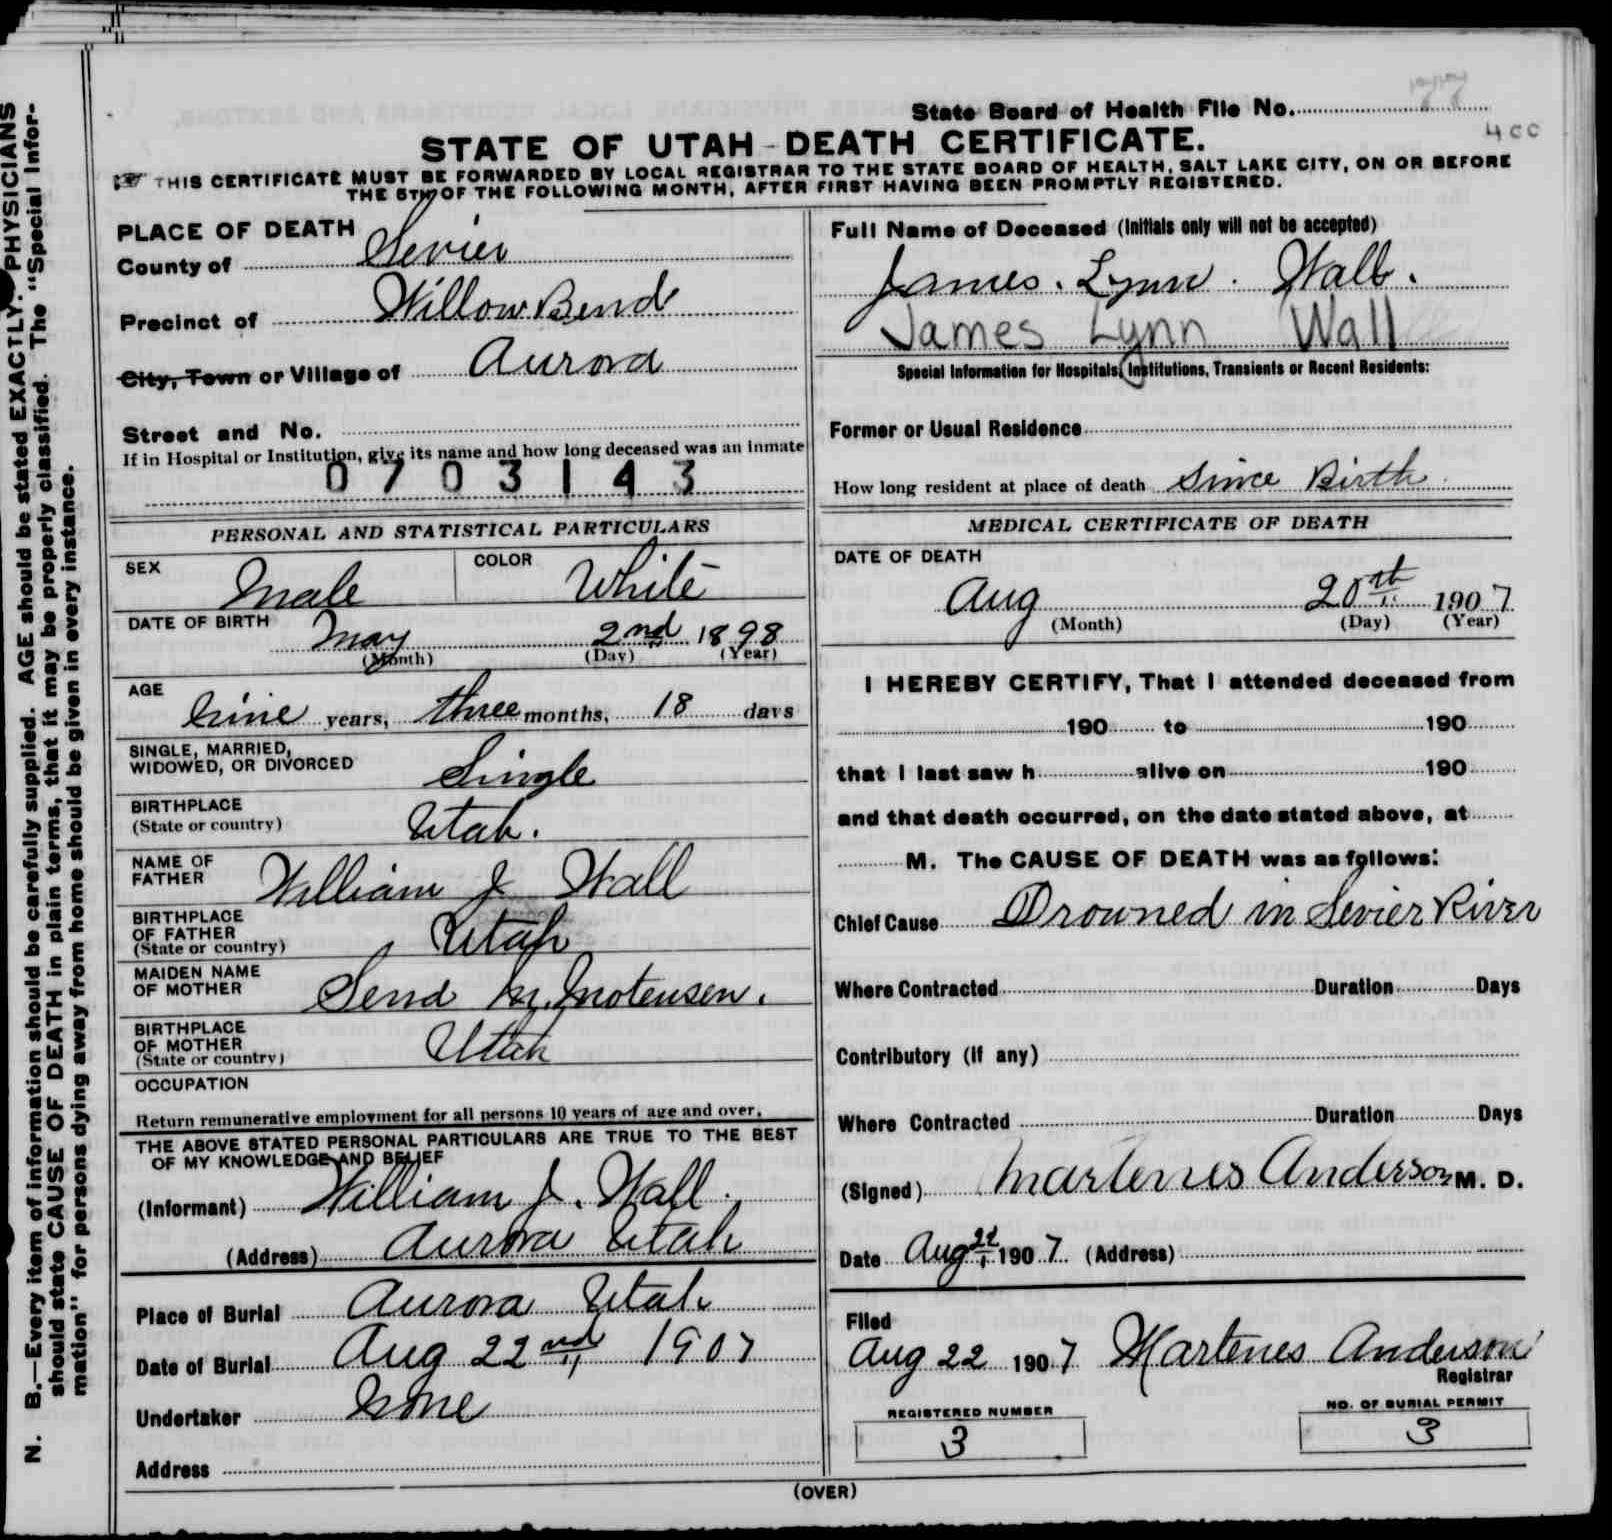 N. B.—Every item of information should be carefully supplied. AGE should be stated EXACTLY. PHYSICIANS
should state CAUSE OF DEATH in plain terms, that it may be properly classified. The "Special Infor-
mation" for persons dying away from home should be given in every instance.
State Board of Health File No.
4 c c
STATE OF UTAH - DEATH CERTIFICATE.
THIS CERTIFICATE MUST BE FORWARDED BY LOCAL REGISTRAR TO THE STATE BOARD OF HEALTH, SALT LAKE CITY, ON OR BEFORE
THE 5TH OF THE FOLLOWING MONTH, AFTER FIRST HAVING BEEN PROMPTLY REGISTERED.
PLACE OF DEATH
County of Sevier
Precinct of Willow Bend
City, Town or Village of Aurora
Street and No.
If in Hospital or Institution, give its name and how long deceased was an inmate
0703143
PERSONAL AND STATISTICAL PARTICULARS
SEX Male COLOR White
DATE OF BIRTH May 2nd 1898
(Month) (Day) (Year)
AGE nine years, three months, 18 days
SINGLE, MARRIED,
WIDOWED, OR DIVORCED Single
BIRTHPLACE
(State or country) Utah.
NAME OF
FATHER William J Wall
BIRTHPLACE
OF FATHER
(State or country) Utah
MAIDEN NAME
OF MOTHER Send M. Motensen.
BIRTHPLACE
OF MOTHER
(State or country) Utah
OCCUPATION
Return remunerative employment for all persons 10 years of age and over.
THE ABOVE STATED PERSONAL PARTICULARS ARE TRUE TO THE BEST
OF MY KNOWLEDGE AND BELIEF
(Informant) William J. Wall.
(Address) Aurora Utah
Place of Burial Aurora Utah
Date of Burial Aug 22nd 1907
Undertaker None
Address
Full Name of Deceased (Initials only will not be accepted)
James. Lynn. Wall.
James Lynn Wall
Special Information for Hospitals, Institutions, Transients or Recent Residents:
Former or Usual Residence
How long resident at place of death Since Birth
MEDICAL CERTIFICATE OF DEATH
DATE OF DEATH
Aug 20th 1907
(Month) (Day) (Year)
I HEREBY CERTIFY, That I attended deceased from
190 to 190
that I last saw h alive on 190
and that death occurred, on the date stated above, at
M. The CAUSE OF DEATH was as follows:
Chief Cause Drowned in Sevier River
Where Contracted Duration Days
Contributory (if any)
Where Contracted Duration Days
(Signed) Martenes Anderson M. D.
Date Aug 1907 (Address)
Filed
Aug 22 1907 Martenes Anderson
Registrar
REGISTERED NUMBER
3
NO. OF BURIAL PERMIT
3
(OVER)